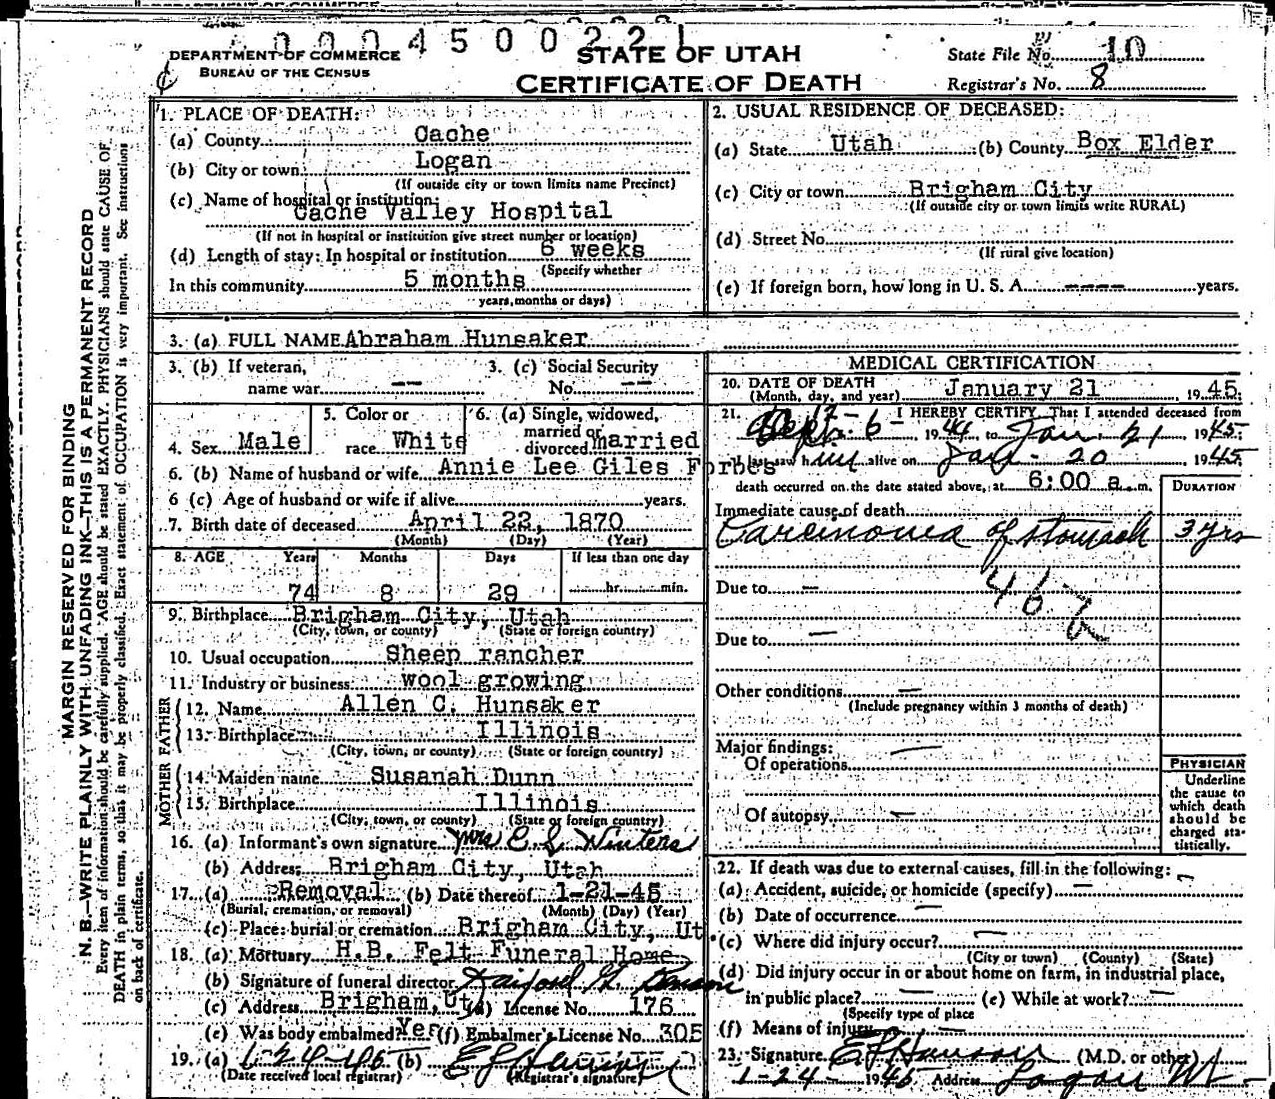 0004500221
DEPARTMENT OF COMMERCE
BUREAU OF THE CENSUS
STATE OF UTAH
CERTIFICATE OF DEATH
State File No. 10
Registrar's No. 8
MARGIN RESERVED FOR BINDING
N. B.—WRITE PLAINLY WITH UNFADING INK—THIS IS A PERMANENT RECORD
Every item of information should be carefully supplied. AGE should be stated EXACTLY. PHYSICIANS should state CAUSE OF
DEATH in plain terms, so that it may be properly classified. Exact statement of OCCUPATION is very important. See instructions
on back of certificate.
1. PLACE OF DEATH:
(a) County Cache
(b) City or town Logan
(If outside city or town limits name Precinct)
(c) Name of hospital or institution:
Cache Valley Hospital
(If not in hospital or institution give street number or location)
(d) Length of stay: In hospital or institution 6 weeks
(Specify whether
In this community 5 months
years, months or days)
2. USUAL RESIDENCE OF DECEASED:
(a) State Utah (b) County Box Elder
(c) City or town Brigham City
(If outside city or town limits write RURAL)
(d) Street No.
(If rural give location)
(e) If foreign born, how long in U. S. A. ---- years.
3. (a) FULL NAME Abraham Hunsaker
3. (b) If veteran,
name war --
3. (c) Social Security
No. --
4. Sex Male
5. Color or
race White
6. (a) Single, widowed,
married or
divorced married
6. (b) Name of husband or wife Annie Lee Giles Forbes
6 (c) Age of husband or wife if alive years.
7. Birth date of deceased April 22, 1870
(Month) (Day) (Year)
8. AGE Years Months Days If less than one day
74 8 29 hr. min.
9. Birthplace Brigham City, Utah
(City, town, or county) (State or foreign country)
10. Usual occupation Sheep rancher
11. Industry or business wool growing
FATHER
12. Name Allen C. Hunsaker
13. Birthplace Illinois
(City, town, or county) (State or foreign country)
MOTHER
14. Maiden name Susanah Dunn
15. Birthplace Illinois
(City, town, or county) (State or foreign country)
16. (a) Informant's own signature Mrs E. L. Winters
(b) Address Brigham City, Utah
17. (a) Removal (b) Date thereof 1-21-45
(Burial, cremation, or removal) (Month) (Day) (Year)
(c) Place: burial or cremation Brigham City, Ut
18. (a) Mortuary H.B. Felt Funeral Home
(b) Signature of funeral director
(c) Address Brigham, Ut (d) License No. 176
(e) Was body embalmed? Yes (f) Embalmer's License No. 305
19. (a) 1-24-45 (b)
(Date received local registrar) (Registrar's signature)
MEDICAL CERTIFICATION
20. DATE OF DEATH
(Month, day, and year) January 21 1945
21. I HEREBY CERTIFY, That I attended deceased from
12-6- 1944, to Jan. 21 1945;
I last saw him alive on Jan- 20 1945
death occurred on the date stated above, at 6:00 a.m.
DURATION
Immediate cause of death
Carcinoma of stomach 3 yrs
Due to —
46b
Due to —
Other conditions —
(Include pregnancy within 3 months of death)
Major findings:
Of operations —
Of autopsy —
PHYSICIAN
Underline
the cause to
which death
should be
charged sta-
tistically.
22. If death was due to external causes, fill in the following: —
(a) Accident, suicide, or homicide (specify) —
(b) Date of occurrence —
(c) Where did injury occur? —
(City or town) (County) (State)
(d) Did injury occur in or about home on farm, in industrial place,
in public place? — (e) While at work? —
(Specify type of place
(f) Means of injury —
23. Signature (M.D. or other)
1-24- 1945 Address Logan Ut